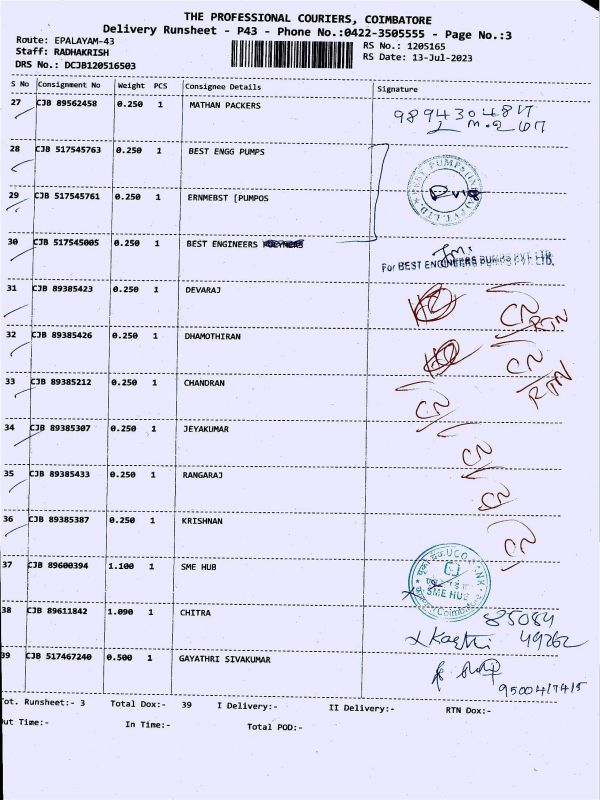 THE PROFESSIONAL COURIERS, COIMBATORE
Delivery Runsheet - P43 - Phone No.:0422-3505555 - Page No.:3
Route: EPALAYAM-43
RS No.: 1205165
Staff: RADHAKRISH
RS Date: 13-Jul-2023
DRS No.: DCJB120516503
S No Consignment No Weight PCS Consignee Details Signature
27 CJB 89562458 0.250 1 MATHAN PACKERS
28 CJB 517545763 0.250 1 BEST ENGG PUMPS
29 CJB 517545761 0.250 1 ERNMEBST [PUMPOS
30 CJB 517545005 0.250 1 BEST ENGINEERS
For BEST ENGINEERS PUMPS PVT. LTD.
31 CJB 89385423 0.250 1 DEVARAJ CN RTN
32 CJB 89385426 0.250 1 DHAMOTHIRAN CN RTN
33 CJB 89385212 0.250 1 CHANDRAN CN
34 CJB 89385307 0.250 1 JEYAKUMAR CN
35 CJB 89385433 0.250 1 RANGARAJ CN
36 CJB 89385387 0.250 1 KRISHNAN CN
37 CJB 89600394 1.100 1 SME HUB
UCO BANK
SME HUB
Coimbatore
38 CJB 89611842 1.090 1 CHITRA
85084
49262
39 CJB 517467240 0.500 1 GAYATHRI SIVAKUMAR
Tot. Runsheet:- 3 Total Dox:- 39 I Delivery:- II Delivery:- RTN Dox:-
Out Time:- In Time:- Total POD:-